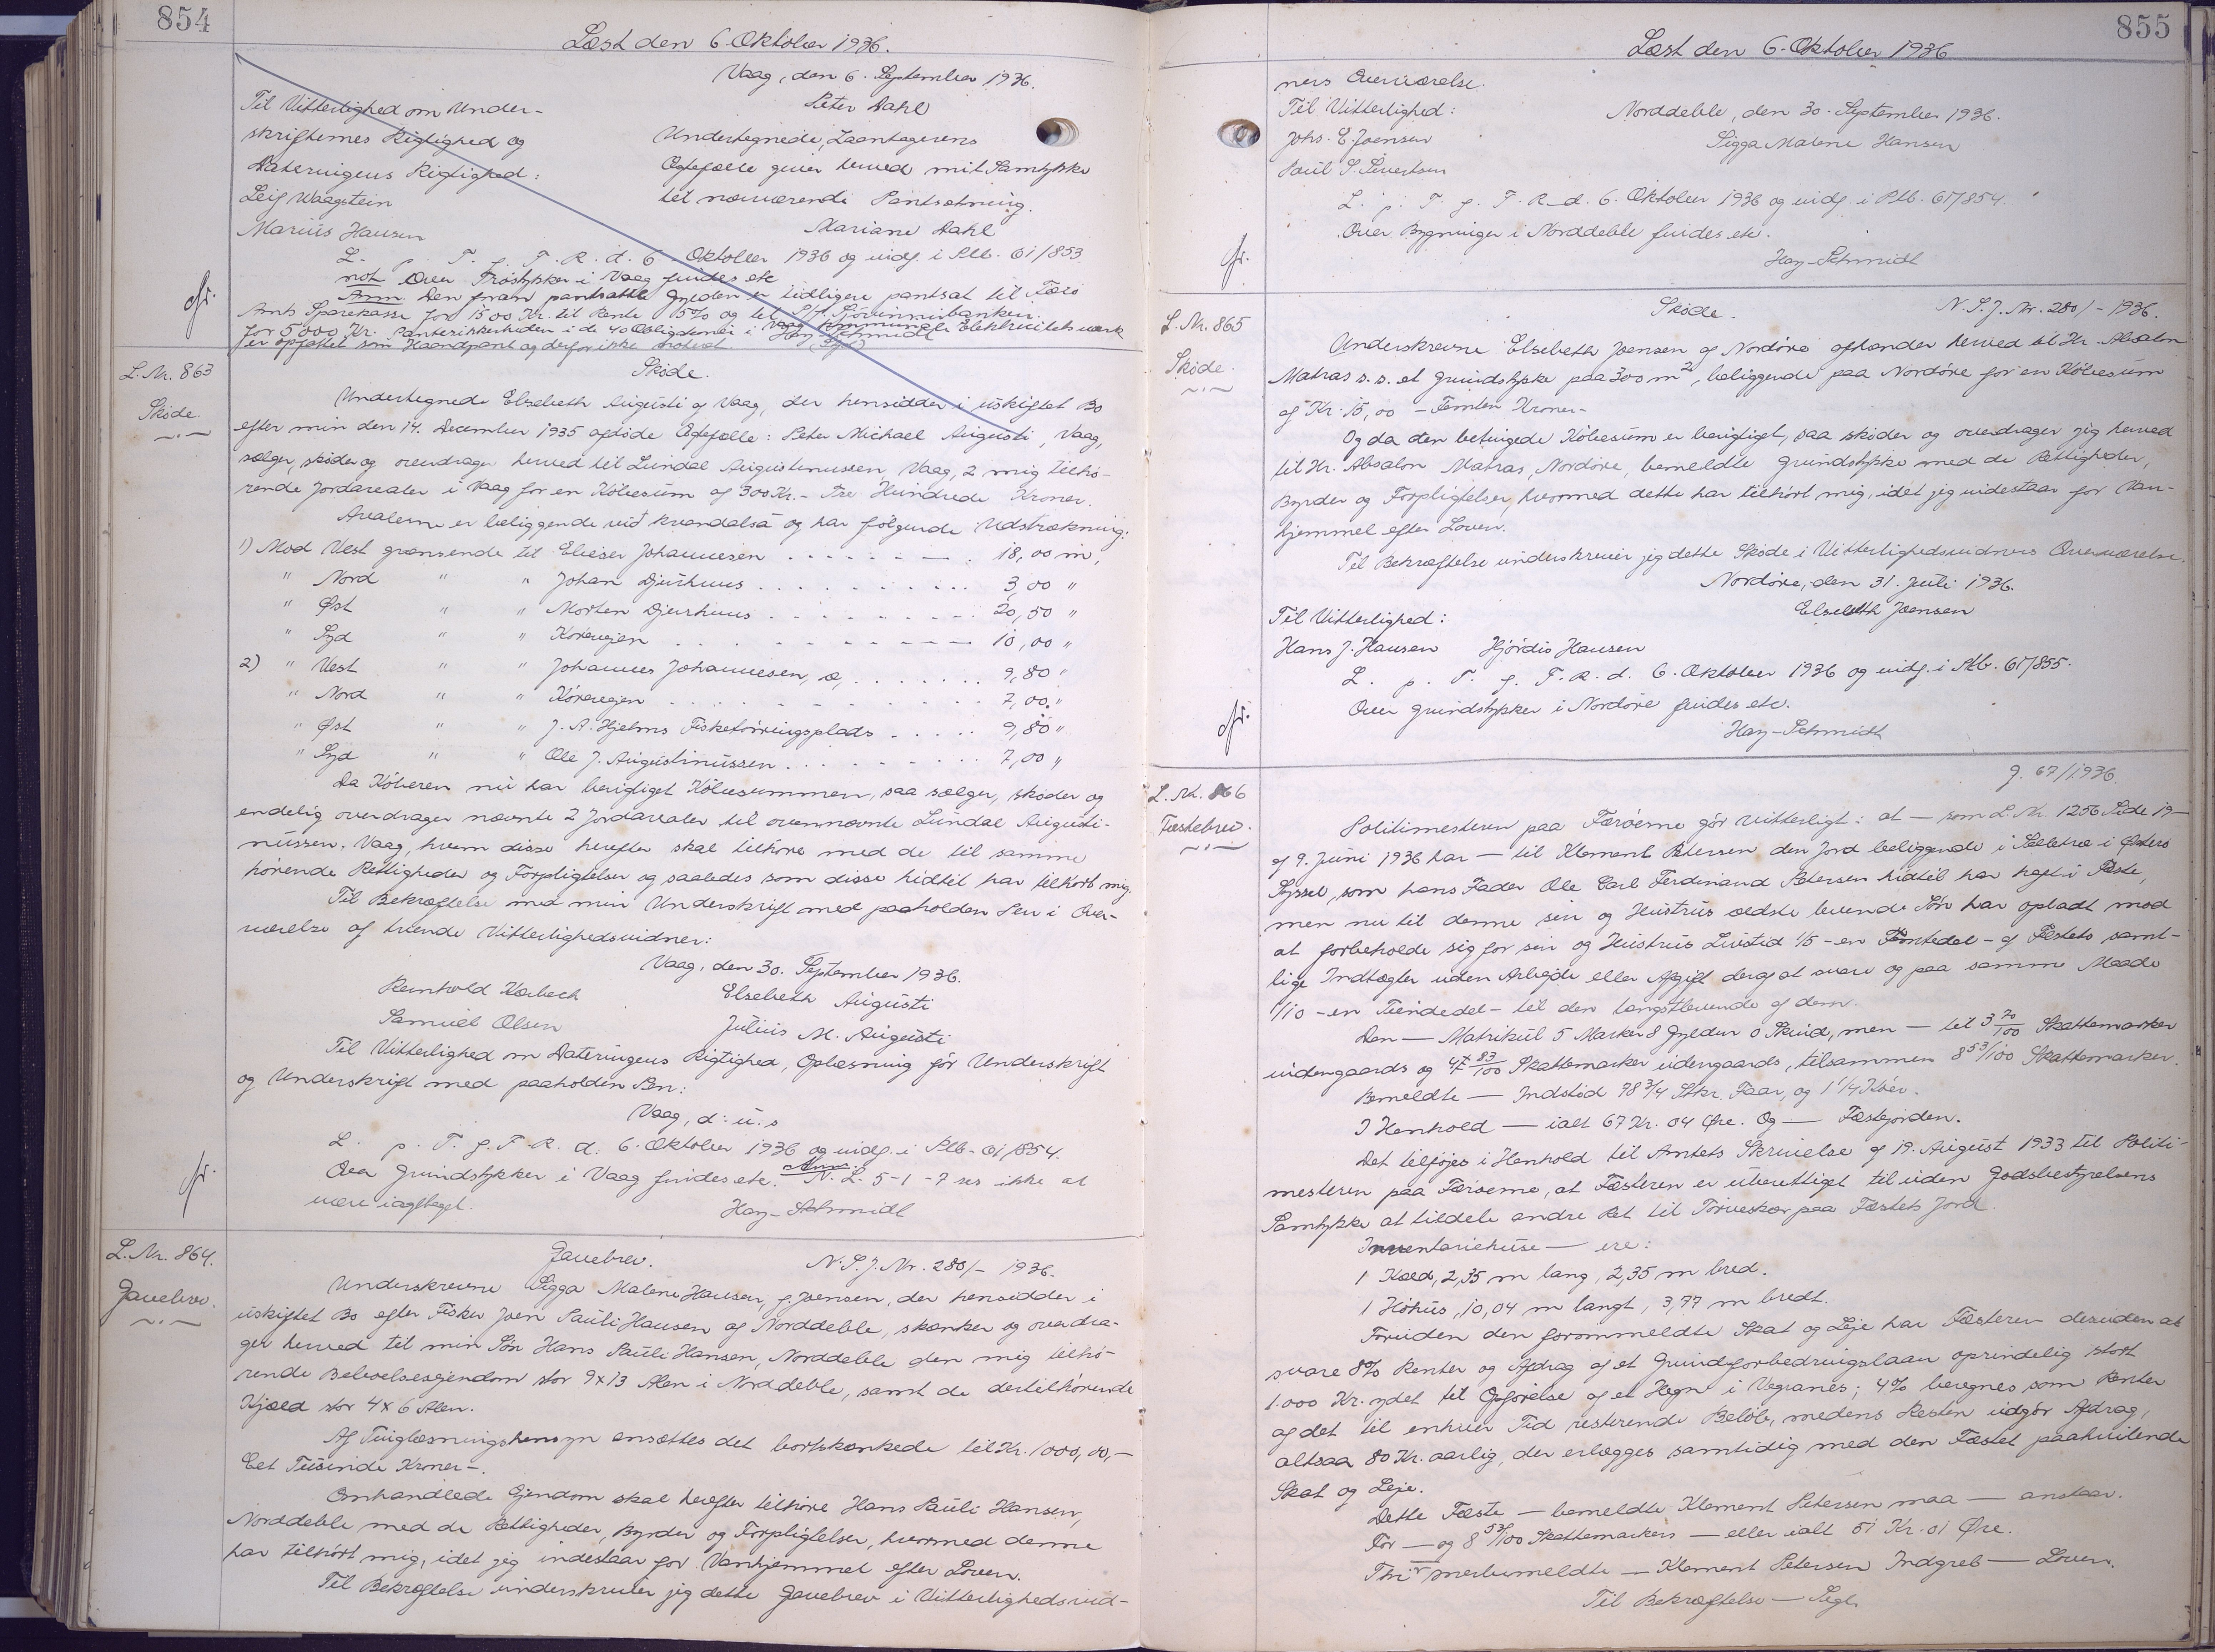 854
Læst den 6. Oktober 1936.
Vaag, den 6. September 1936.
Til Vitterlighed om Under-
Peter Dahl
skrifternes Rigtighed og
Undertegnede, Laantagerens
Dateringens Rigtighed:
Ægtefælle giver herved mit Samtykke
Leif Waagstein
til nærværende Pantsætning.
Marius Hansen
Mariane Dahl
L. p. T. f. F. R. d. 6. Oktober 1936 og indf. i Ptb. 61/853
not Over Trøstykker i Vaag findes etc
cfr.
Anm. Den foran pantsatte Gylden er tidligere pantsat til Færø
Amts Sparekasse for 1500 Kr. til Rente 5% og til P/F Sjóvinnubankin
for 5000 Kr. Pantesikkerheden i de 40 Obligationer i Vaag Kommunale Elektricitetsværk
er opfattet som Haandpant og derfor ikke noteret. Hay-Schmidt
L. Nr. 863
Skøde.
Skøde.
Undertegnede Elsebeth Augusti af Vaag, der hensidder i uskiftet Bo
efter min den 14. December 1935 afdøde Ægtefælle: Peter Michael Augusti, Vaag,
sælger, skøder og overdrager herved til Lundal Augustinussen, Vaag, 2 mig tilhø-
rende Jordarealer i Vaag for en Købesum af 300 Kr. - Tre Hundrede Kroner.
Arealerne er beliggende við Kvandalsá og har følgende Udstrækning:
1) Mod Vest grænsende til Elieser Johannesen . . . . . . . 18,00 m,
" Nord " " Johan Djurhuus . . . . . . . . . . . 3,00 "
" Øst " " Morten Djurhuus . . . . . . . . . . 20,50 "
" Syd " " Kørevejen . . . . . . . . . . 10,00 "
2) " Vest " " Johannes Johannesen, o, . . . . . . . 9,80 "
" Nord " " Kørevejen . . . . . . . . . . . . 7,00 "
" Øst " " J. A. Hjelms Fisketørringsplads . . . . . 9,80 "
" Syd " " Ole J. Augustinussen . . . . . . . . . 7,00 "
Da Køberen nu har berigtiget Købesummen, saa sælger, skøder og
endelig overdrager nævnte 2 Jordarealer til ovennævnte Lundal Augusti-
nussen, Vaag, hvem disse herefter skal tilhøre med de til samme
hørende Rettigheder og Forpligtelser og saaledes som disse hidtil har tilhørt mig.
Til Bekræftelse med min Underskrift med paaholden Pen i Over-
værelse af tvende Vitterlighedsvidner:
Vaag, den 30. September 1936.
Reinhold Kørbech
Elsebeth Augusti
Samuel Olsen
Julius M. Augusti
Til Vitterlighed om Dateringens Rigtighed, Oplæsning før Underskrift
og Underskrift med paaholden Pen:
Vaag, d: u. s
L. p. T. f. F. R. d. 6. Oktober 1936 og indf. i Ptb. 61/854.
cfr.
Over Grundstykker i Vaag findes etc. Anm. N. L. 5-1-7 ses ikke at
være iagttaget.
Hay-Schmidt
L. Nr. 864.
Gavebrev.
Gavebrev.
N. S. J. Nr. 280/- 1936.
Underskrevne Sigga Malene Hansen, f. Joensen, der hensidder i
uskiftet Bo efter Fisker Joen Pauli Hansen af Norddeble, skænker og overdra-
ger herved til min Søn Hans Pauli Hansen, Norddeble den mig tilhø-
rende Beboelsesejendom stor 9 x 13 Alen i Norddeble, samt de dertilhørende
Kjæld stor 4 x 6 Alen.
Af Tinglæsningshensyn ansættes det bortskænkede til Kr. 1000,00,-
Eet Tusinde Kroner-.
Omhandlede Ejendom skal herefter tilhøre Hans Pauli Hansen,
Norddeble med de Rettigheder, Byrder og Forpligtelser, hvormed denne
har tilhørt mig, idet jeg indestaar for Vanhjemmel efter Loven.
Til Bekræftelse underskriver jeg dette Gavebrev i Vitterlighedsvid-
855
Læst den 6. Oktober 1936
ners Overværelse.
Til Vitterlighed:
Norddeble, den 30. September 1936.
Johs. E. Joensen
Sigga Malene Hansen
Poul S. Sivertsen
L. p. T. f. F. R. d. 6. Oktober 1936 og indf. i Ptb. 61/854.
cfr.
Over Bygninger i Norddeble findes etc.
Hay-Schmidt
L. Nr. 865
Skøde.
Skøde.
N. S. J. Nr. 280/- 1936.
Underskrevne Elsebeth Joensen af Nordøre afhænder herved til Hr. Absalon
Matras s. s. et Grundstykke paa 300 m², beliggende paa Nordøre for en Købesum
af Kr. 15,00 - Femten Kroner-
Og da den betingede Købesum er berigtiget, saa skøder og overdrager jeg herved
til Hr. Absalon Matras, Nordøre, bemeldte Grundstykke med de Rettigheder,
Byrder og Forpligtelser, hvormed dette har tilhørt mig, idet jeg indestaar for Van-
hjemmel efter Loven.
Til Bekræftelse underskriver jeg dette Skøde i Vitterlighedsvidners Overværelse.
Nordøre, den 31. Juli 1936.
Til Vitterlighed:
Elsebeth Joensen
Hans J. Hansen Hjørdis Hansen
L. p. T. f. F. R. d. 6. Oktober 1936 og indf. i Ptb. 61/855.
cfr.
Over Grundstykker i Nordøre findes etc.
Hay-Schmidt
J. 67/1936.
L. Nr. 866
Fæstebrev.
Politimesteren paa Færøerne gør vitterligt: at — som L. Nr. 1256 Side 19—
af 9. Juni 1936 har — til Klement Petersen den Jord beliggende i Selletræ i Østerø
Syssel, som hans Fader Ole Carl Ferdinand Petersen hidtil har haft i Fæste,
men nu til denne sin og Hustrus ældste levende Søn har opladt mod
at forbeholde sig for sin og Hustrus Livstid 1/5 - en Femtedel - af Fæstets samt-
lige Indtægter uden Arbejde eller Afgift deraf at svare og paa samme Maade
1/10 - en Tiendedel - til den længstlevende af dem.
Den — Matrikul 5 Marker 8 Gylden 0 Skind, men — til 3 70/100 Skattemarker
indengaards og 4 83/100 Skattemarker udengaards, tilsammen 8 53/100 Skattemarker.
Bemeldte — Indstød 98 3/4 Stkr. Faar, og 1 1/4 Køer.
I Henhold — ialt 67 Kr. 04 Øre. Og — Fæstejorden.
Det tilføjes i Henhold til Amtets Skrivelse af 19. August 1933 til Politi-
mesteren paa Færøerne, at Fæsteren er uberettiget til uden Godsbestyrelsens
Samtykke at tildele andre Ret til Tørveskær paa Fæstets Jord.
Inventariehuse — ere:
1 Kæld, 2,35 m lang, 2,35 m bred.
1 Høhus, 10,04 m langt, 3,77 m bredt.
Foruden den forommeldte Skat og Leje har Fæsteren desuden at
svare 8% Renter og Afdrag af et Grundforbedringslaan oprindelig stort
1.000 Kr. ydet til Opførelse af et Hegn i Vegranes; 4% beregnes som Renter
af det til enhver Tid resterende Beløb, medens Resten udgør Afdrag,
altsaa 80 Kr. aarlig, der erlægges samtidig med den Fæstet paahvilende
Skat og Leje.
Dette Fæste — bemeldte Klement Petersen maa — anstaar.
For — og 8 53/100 Skattemarkers — eller ialt 51 Kr. 01 Øre.
Thi — merbemeldte — Klement Petersen Indgreb — Loven.
Til Bekræftelse — Segl.